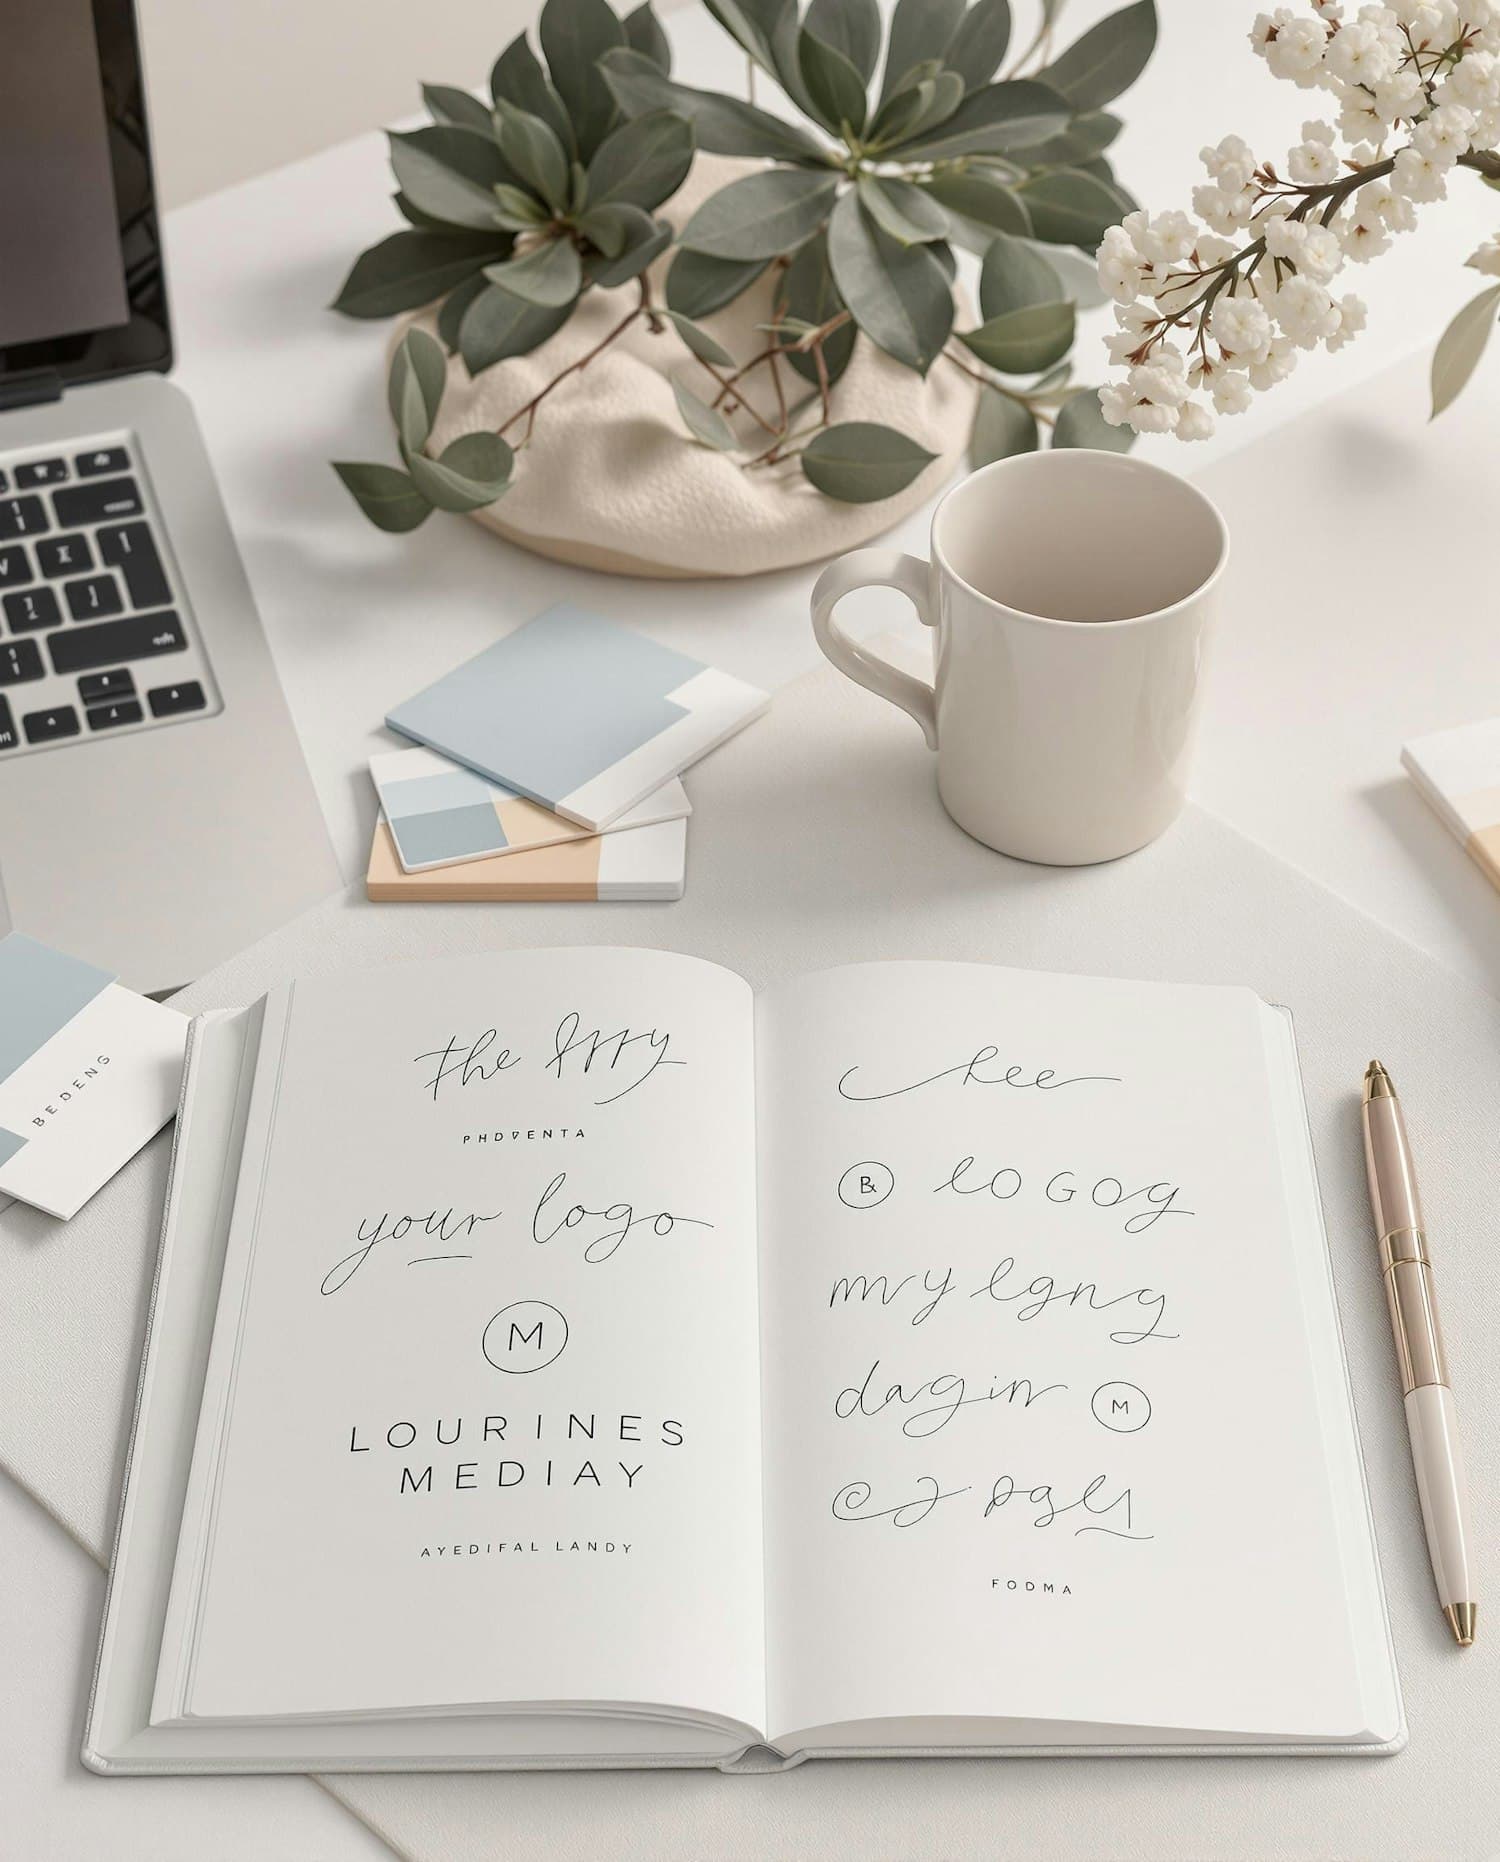 BEDENG
the
PHDVENTA
your logo
M
LOURINES
MEDIAY
AYEDIFAL LANDY
hee
B LOGOg
mvy lgnng
dagin M
FODMA